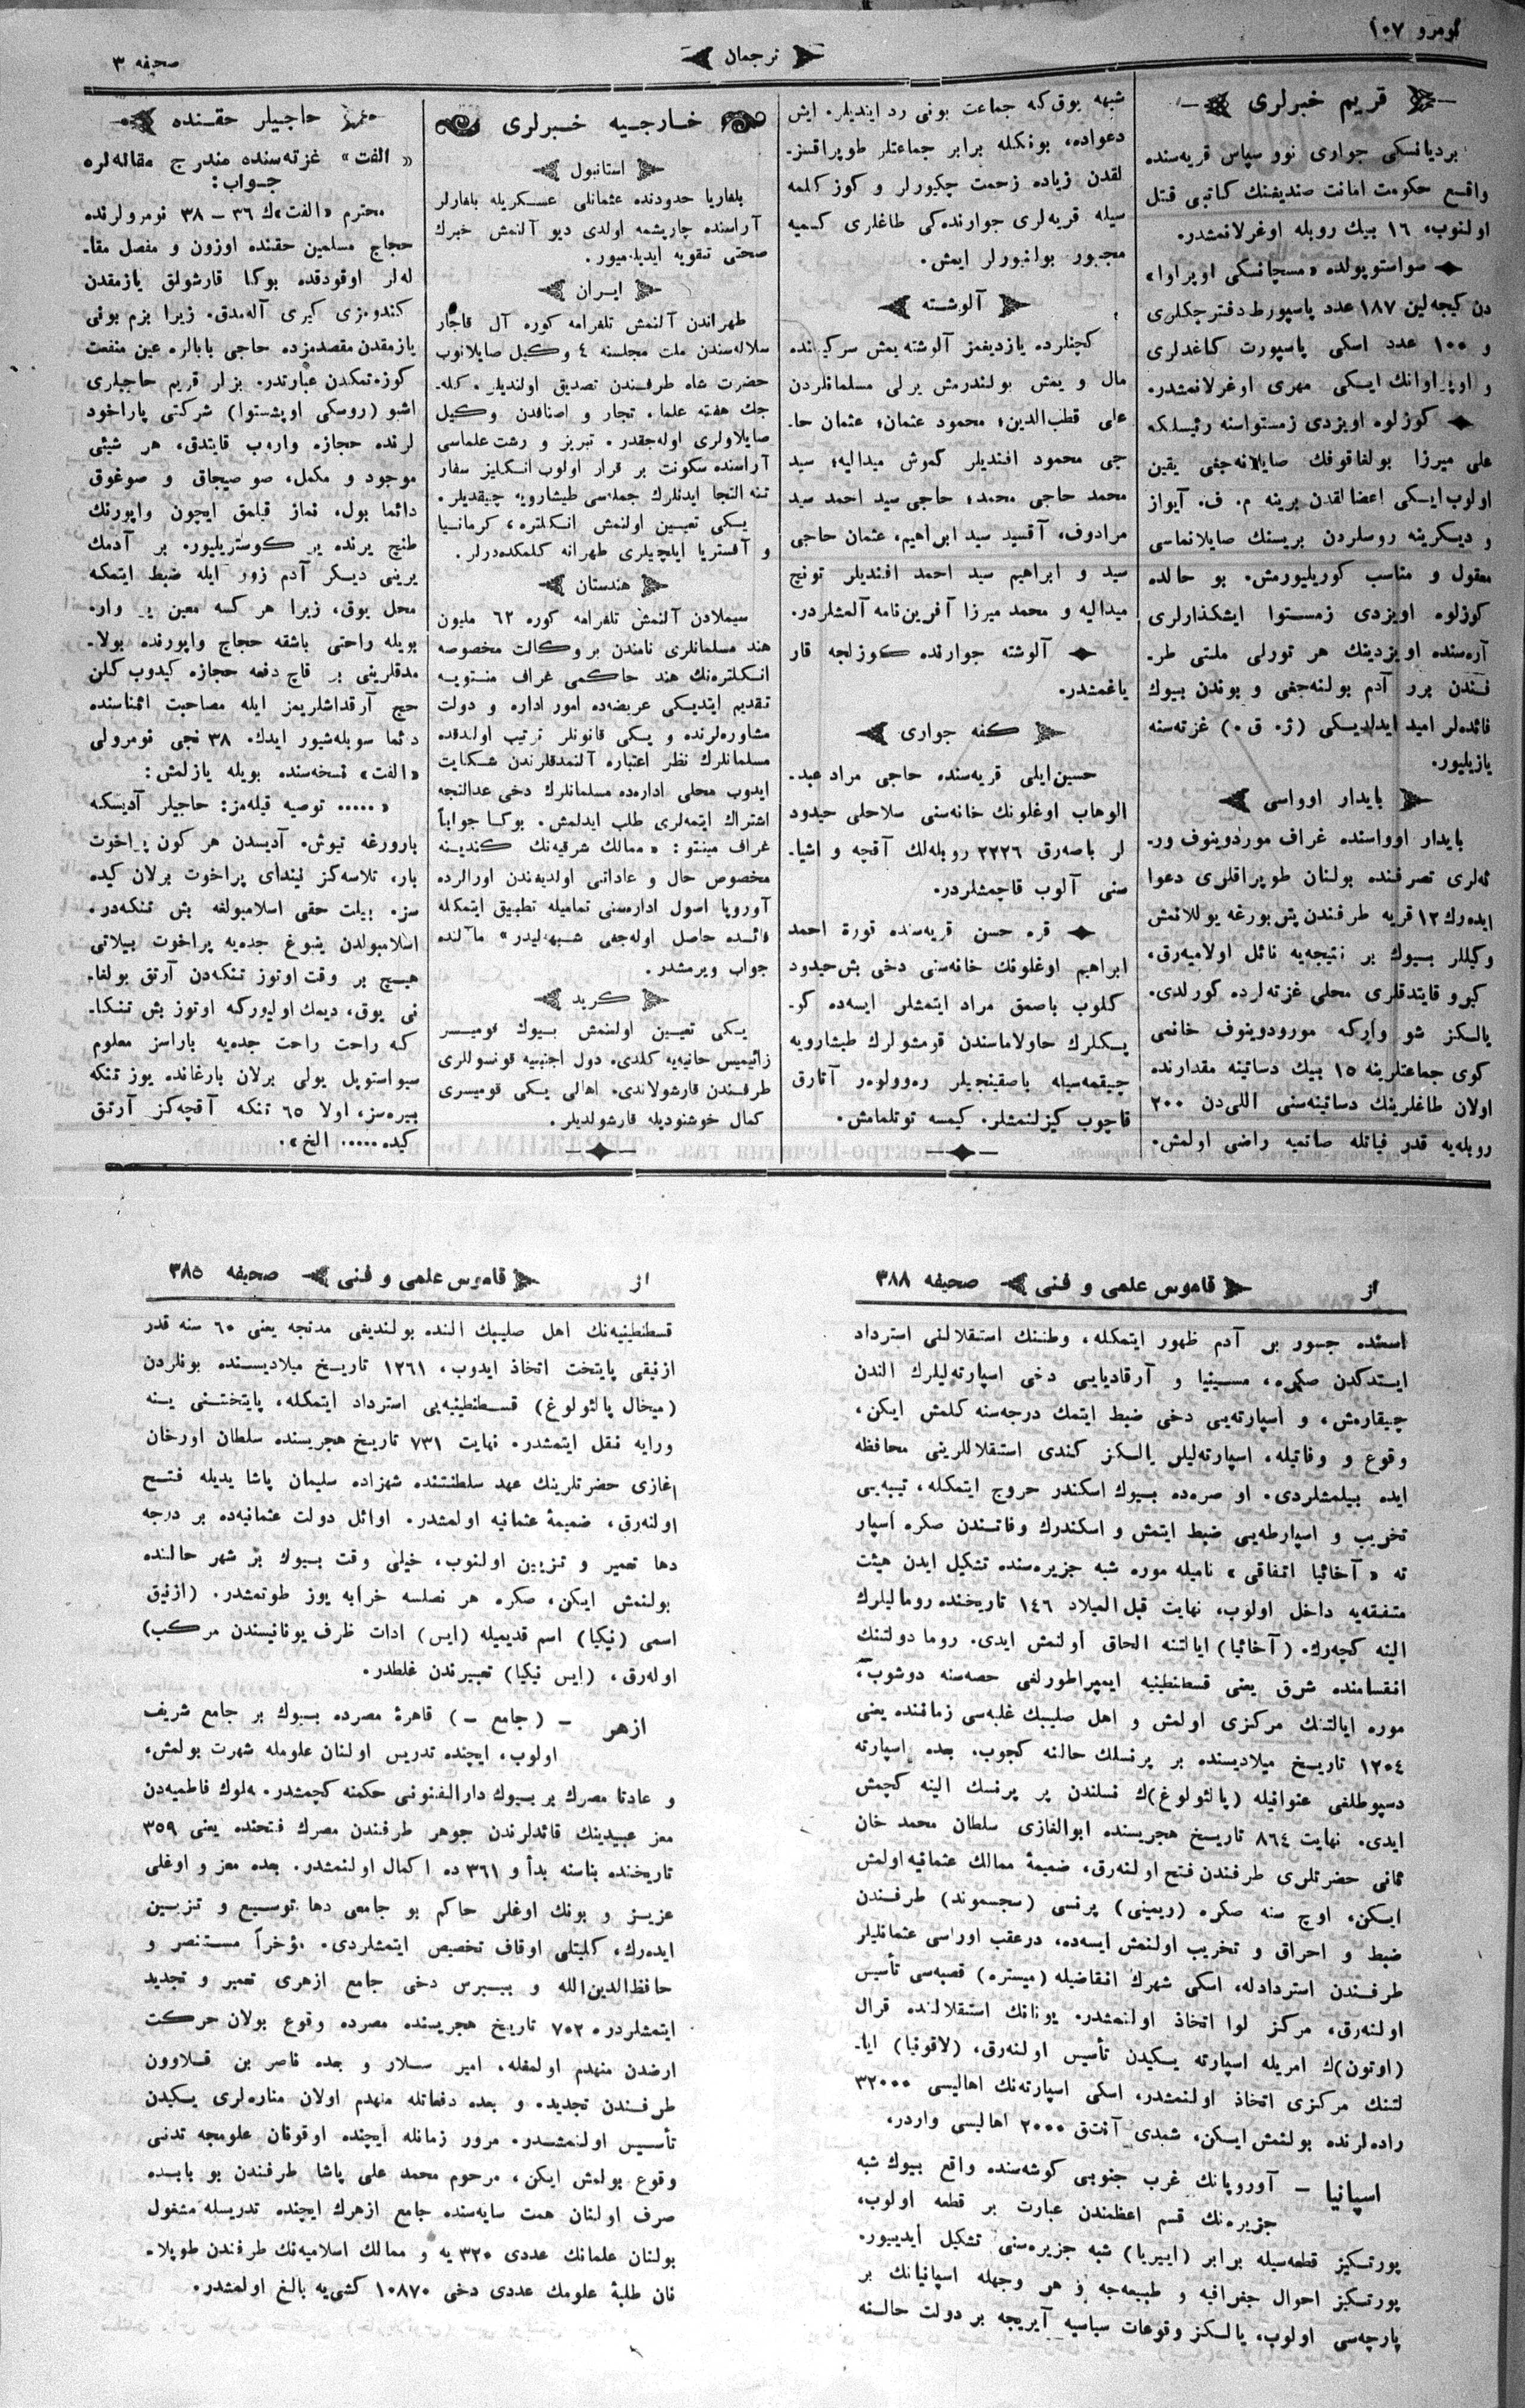 نومرو ١٠٧
ترجمان
صحيفه ٣
قريم خبرلری
برديانسكی جواری نوو سپاس قريه‌سنده
واقع حكومت امانت صنديغنك كاتبی قتل
اولنوب، ١٦ بيك روبله اوغرلانمشدر.
سواستوپولده «مسچانسكی اوپراوا»
دن كيجه‌لين ١٨٧ عدد پاسپورط دفترجكلری
و ١٠٠ عدد اسكی پاسپورت كاغدلری
و اوپراوانك ايكی مهری اوغرلانمشدر.
كوزلوه اويزدی زمستواسنه رئيسلكه
علی ميرزا بولغاقوفك صايلانه‌جغی يقين
اولوب ايكی اعضالقدن برينه م. ف. آيواز
و ديكرينه روسلردن بريسنك صايلانماسی
معقول و مناسب كوريليورمش. بو حالده
كوزلوه اويزدی زمستوا ايشكذارلری
آره‌سنده اويزدينك هر تورلی ملتی طر-
فندن برر آدم بولنه‌جغی و بوندن بيوك
فائده‌لر اميد ايدلديكی (ژ. ق.) غزته‌سنه
يازيليور.
بايدار اوواسی
بايدار اوواسنده غراف موردوينوف ور-
ثه‌لری تصرفنده بولنان طوپراقلری دعوا
ايده‌رك ١٢ قريه طرفندن پتربورغه يوللانمش
وكيللر بيوك بر نتيجه‌يه نائل اولاميه‌رق،
كيرو قايتدقلری محلی غزته‌لرده كورلدی.
يالكز شو واركه موردوينوف خانمی
كوی جماعتلرينه ١٥ بيك دساتينه مقدارنده
اولان طاغلرينك دساتينه‌سنی اللی‌دن ٢٠٠
روبله‌يه قدر فيأتله صاتميه راضی اولمش.
شبهه يوق كه جماعت بونی رد ايتديلر. ايش
دعواده، بونكله برابر جماعتلر طوپراقسز-
لقدن زياده زحمت چكيورلر و كوز كلمه
سيله قريه‌لری جوارنده‌كی طاغلری كسميه
مجبور بولانيورلر ايمش.
آلوشته
كچنلرده يازديغمز آلوشته يمش سركيسنده
مال و يمش بولندرمش يرلی مسلمانلردن
علی قطب‌الدين؛ محمود عثمان؛ عثمان حا-
جی محمود افنديلر كموش ميداليه؛ سيد
محمد حاجی محمد؛ حاجی سيد احمد سيد
مرادوف، آقسيد سيد ابراهيم، عثمان حاجی
سيد و ابراهيم سيد احمد افنديلر تونج
ميداليه و محمد ميرزا آفرين‌نامه آلمشلردر.
آلوشته جوارنده كوزلجه قار
ياغمشدر.
كفه جواری
حسين‌ايلی قريه‌سنده حاجی مراد عبد-
الوهاب اوغلونك خانه‌سنی سلاحلی حيدود
لر باصه‌رق ٢٢٢٦ روبله‌لك آقچه و اشيا-
سنی آلوب قاچمشلردر.
قره حسن قريه‌سنده قورة احمد
ابراهيم اوغلونك خانه‌سنی دخی بش حيدود
كلوب باصمق مراد ايتمشلر ايسه‌ده كو-
پكلرك حاولاماسندن قومشولرك طيشارويه
چيقمه‌سيله باصقينجيلر ره‌وولوه‌ر آتارق
قاچوب كيزلنمشلر. كيمسه توتلمامش.
خارجيه خبرلری
استانبول
بلغاريا حدودنده عثمانلی عسكريله بلغارلر
آراسنده چارپشمه اولدی ديو آلنمش خبرك
صحتی تقويه ايديلميور.
ايران
طهراندن آلنمش تلغرامه كوره آل قاجار
سلاله‌سندن ملت مجلسنه ٤ وكيل صايلانوب
حضرت شاه طرفندن تصديق اولنديلر. كله-
جك هفته علما، تجار و اصنافدن وكيل
صايلاولری اوله‌جقدر. تبريز و رشت علماسی
آراسنده سكونت بر قرار اولوب انكليز سفار
تنه التجا ايدنلرك جمله‌سی طيشارويه چيقديلر.
يكی تعيين اولنمش انكلتره، كرمانيا
و آفستريا ايلچيلری طهرانه كلمكده‌درلر.
هندستان
سيملادن آلنمش تلغرامه كوره ٦٢ مليون
هند مسلمانلری نامندن بر وكالت مخصوصه
انكلتره‌نك هند حاكمی غراف منتويه
تقديم ايتديكی عريضه‌ده امور اداره و دولت
مشاوره‌لرنده و يكی قانونلر ترتيب اولندقده
مسلمانلرك نظر اعتباره آلنمدقلرندن شكايت
ايدوب محلی اداره‌ده مسلمانلرك دخی عدالتجه
اشتراك ايتمه‌لری طلب ايدلمش. بوكا جواباً
غراف مينتو: «ممالك شرقيه‌نك كندينه
مخصوص حال و عاداتی اولديغندن اورالرده
آوروپا اسول اداره‌سنی تماميله تطبيق ايتمكله
فائده حاصل اوله‌جغی شبهه‌ليدر» مآلنده
جواب ويرمشدر.
كريد
يكی تعيين اولنمش بيوك قوميسر
زائيميس حانيه‌يه كلدی. دول اجنبيه قونسوللری
طرفندن قارشولاندی. اهالی يكی قوميسری
كمال خوشنوديله قارشولديلر.
حاجيلر حقنده
«الفت» غزته‌سنده مندرج مقاله‌لره
جواب:
محترم «الفت»ك ٣٦ – ٣٨ نومرولرنده
حجاج مسلمين حقنده اوزون و مفصل مقا-
له‌لر اوقودقده بوكا قارشولق يازمقدن
كندومزی كيری آله‌مدق. زيرا بزم بونی
يازمقدن مقصدمزده حاجی بابالره عين منفعت
كوزه‌تمكدن عبارتدر. بزلر قريم حاجيلری
اشبو (روسكی اوبشستوا) شركتی پاراخود
لرنده حجازه واروب قايتدق، هر شيئی
موجود و مكمل، صو صيجاق و صوغوق
دائما بول، نماز قيلمق ايچون واپورنك
طنچ يرنده ير كوستريليور. بر آدمك
يرينی ديكر آدم زور ايله ضبط ايتمكه
محل يوق، زيرا هر كسه معين ير وار.
بويله راحتی باشقه حجاج واپورنده بولا-
مدقلرينی بر قاچ دفعه حجازه كيدوب كلن
حج آرقداشلريمز ايله مصاحبت اثناسنده
دائما سويله‌شيور ايدك. ٣٨ نجی نومرولی
«الفت» نسخه‌سنده بويله يازلمش:
«..... توصيه قيله‌مز: حاجيلر آديسكه
بارورغه تيوش. آديسدن هر كون پراخوت
بار، تلاسه‌كز ليندای پراخوت برلان كيده
سز. بيلت حقی اسلامبولغه بش تنكه‌در.
اسلامبولدن ينبوغ جده‌يه پراخوت بيلاتی
هيچ بر وقت اوتوز تنكه‌دن آرتق بولغا-
نی يوق، ديمك اوليوركه اوتوز بش تنكا-
كه راحت راحت جده‌يه باراسز معلوم
سيواستوپل يولی برلان بارغانده يوز تنكه
بيره‌سز، اولا ٦٥ تنكه آقچه‌كز آرتق
كيده..... الخ».
از
قاموس علمی و فنی
صحيفه ٣٨٨
اسنده جسور بر آدم ظهور ايتمكله، وطننك استقلالنی استرداد
ايتدكدن صكره، مسينيا و آرقاديايی دخی اسپارته‌ليلرك الندن
چيقارمش، و اسپارته‌يی دخی ضبط ايتمك درجه‌سنه كلمش ايكن،
وقوع و وفاتيله، اسپارته‌ليلر يالكز كندی استقلاللرينی محافظه
ايده بيلمشلردی. او صره‌ده بيوك اسكندر خروج ايتمكله، تيبه‌يی
تخريب و اسپارطه‌يی ضبط ايتمش و اسكندرك وفاتندن صكره اسپار
ته «آخائيا اتفاقی» ناميله موره شبه جزيره‌سنده تشكيل ايدن هيئت
متفقه‌يه داخل اولوب، نهايت قبل الميلاد ١٤٦ تاريخنده روماليلرك
الينه كچه‌رك. (آخائيا) ايالتنه الحاق اولنمش ايدی. روما دولتنك
انقسامنده شرق يعنی قسطنطينيه ايمپراطورلغی حصه‌سنه دوشوب،
موره ايالتنك مركزی اولمش و اهل صليبك غلبه‌سی زماننده يعنی
١٢٠٤ تاريخ ميلاديسنده بر پرنسلك حالنه كچوب، بعده اسپارته
دسپوطلغی عنوانيله (پالئولوغ)ك نسلندن بر پرنسك الينه كچمش
ايدی. نهايت ٨٦٤ تاريخ هجريسنده ابوالغازی سلطان محمد خان
ثانی حضرتلری طرفندن فتح اولنه‌رق، ضميمهٔ ممالك عثمانيه اولمش
ايكن، اوچ سنه صكره (ريمينی) پرنسی (سجسموند) طرفندن
ضبط و احراق و تخريب اولنمش ايسه‌ده، درعقب اوراسی عثمانليلر
طرفندن استردادله، اسكی شهرك انقاضيله (ميستره) قصبه‌سی تأسيس
اولنه‌رق، مركز لوا اتخاذ اولنمشدر. يونانك استقلالنده قرال
(اوتون)ك امريله اسپارته يكيدن تأسيس اولنه‌رق، (لاقونيا) ايا-
لتنك مركزی اتخاذ اولنمشدر. اسكی اسپارته‌نك اهاليسی ٣٢٠٠٠
راده‌لرنده بولنمش ايكن، شمدی آنجق ٢٠٠٠ اهاليسی واردر.
اسپانيا – آوروپانك غرب جنوبی كوشه‌سنده واقع بيوك شبه
جزيره‌نك قسم اعظمندن عبارت بر قطعه اولوب،
پورتكيز قطعه‌سيله برابر (ايبريا) شبه جزيره‌سنی تشكيل ايدييور.
پورتكيز احوال جغرافيه و طبيعه‌جه و هر وجهله اسپانيانك بر
پارچه‌سی اولوب، يالكز وقوعات سياسيه آيريجه بر دولت حالنه
از
قاموس علمی و فنی
صحيفه ٣٨٥
قسطنطينيه‌نك اهل صليبك النده بولنديغی مدتجه يعنی ٦٠ سنه قدر
ازنيقی پايتخت اتخاذ ايدوب، ١٢٦١ تاريخ ميلاديسنده بونلردن
(ميخال پالئولوغ) قسطنطينيه‌يی استرداد ايتمكله، پايتختنی ينه
ورايه نقل ايتمشدر. نهايت ٧٣١ تاريخ هجريسنده سلطان اورخان
غازی حضرتلرينك عهد سلطنتنده شهزاده سليمان پاشا يديله فتح
اولنه‌رق، ضميمهٔ عثمانيه اولمشدر. اوائل دولت عثمانيه‌ده بر درجه
دها تعمير و تزيين اولنوب، خيلی وقت بيوك بر شهر حالنده
بولنمش ايكن، صكره هر نصلسه خرابه يوز طوتمشدر. (ازنيق
اسمی (نيكيا) اسم قديميله (ايس) ادات ظرف يونانيسندن مركب)
اوله‌رق، (ايس نيكيا) تعبيرندن غلطدر.
ازهر – (جامع –) قاهرهٔ مصرده بيوك بر جامع شريف
اولوب، ايچنده تدريس اولنان علومله شهرت بولمش،
و عادتا مصرك بر بيوك دارالفنونی حكمنه كچمشدر. ملوك فاطميه‌دن
معز عبيدينك قائدلرندن جوهر طرفندن مصرك فتحنده يعنی ٣٥٩
تاريخنده بناسنه بدأ و ٣٦١ ده اكمال اولنمشدر. بعده معز و اوغلی
عزيز و بونك اوغلی حاكم بو جامعی دها توسيع و تزيين
ايده‌رك، كليتلی اوقاف تخصيص ايتمشلردی. مؤخراً مستنصر و
حافظ‌الدين‌الله و بيبرس دخی جامع ازهری تعمير و تجديد
ايتمشلردر. ٧٠٢ تاريخ هجريسنده مصرده وقوع بولان حركت
ارضدن منهدم اولمغله، امير سلار و بعده ناصر بن قلاوون
طرفندن تجديد. و بعده دفعاتله منهدم اولان مناره‌لری يكيدن
تأسيس اولنمشدر. مرور زمانله ايچنده اوقونان علومجه تدنی
وقوع بولمش ايكن، مرحوم محمد علی پاشا طرفندن بو بابده
صرف اولنان همت سايه‌سنده جامع ازهرك ايچنده تدريسله مشغول
بولنان علمانك عددی ٣٢٠ يه و ممالك اسلاميه‌نك طرفندن طوپلا-
نان طلبهٔ علومك عددی دخی ١٠٨٧٠ كشی‌يه بالغ اولمشدر.